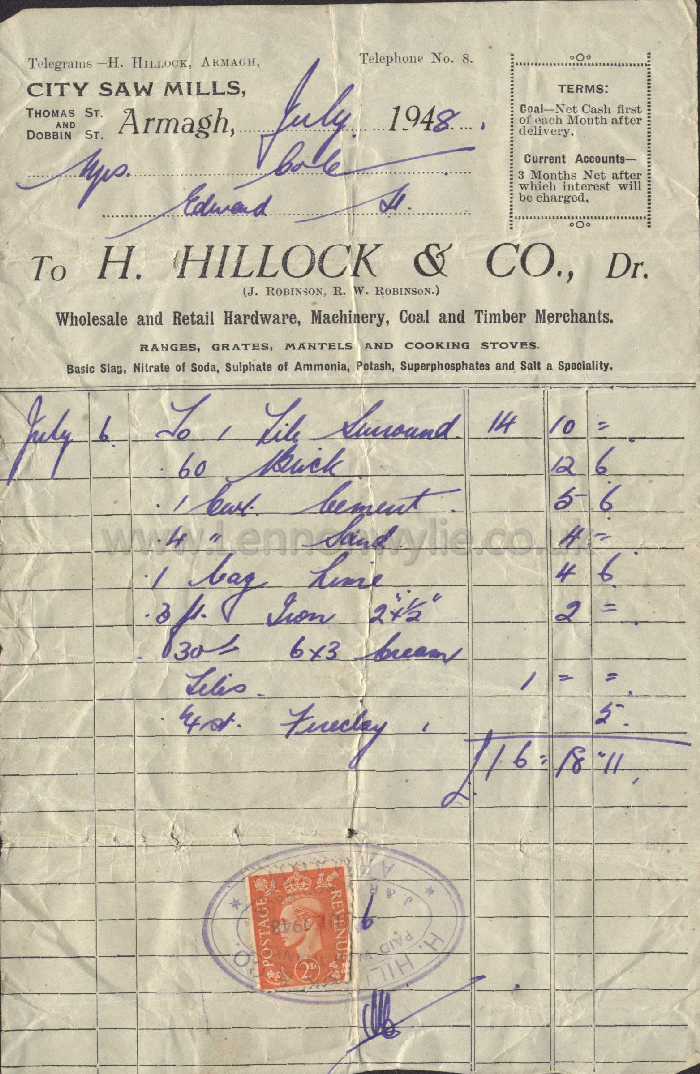 Telegrams—H. HILLOCK, ARMAGH,
Telephone No. 8.
CITY SAW MILLS,
THOMAS ST.
AND
DOBBIN ST.
Armagh, July 1948.
Mrs. Cole
Edward St.
TERMS:
Coal—Net Cash first
of each Month after
delivery.
Current Accounts—
3 Months Net after
which interest will
be charged.
To H. HILLOCK & CO., Dr.
(J. ROBINSON, R. W. ROBINSON.)
Wholesale and Retail Hardware, Machinery, Coal and Timber Merchants.
RANGES, GRATES, MANTELS AND COOKING STOVES.
Basic Slag, Nitrate of Soda, Sulphate of Ammonia, Potash, Superphosphates and Salt a Speciality.
July 6 To 1 Tile Surround. 14 10 =
60 Brick 12 6
1 Cwt. Cement. 5 6
4 " Sand 4 =
1 bag Lime 4 6
3 ft. Iron 2"x½" 2 =
30 6x3 Cream
Tiles. 1 = =
4 st. Fireclay 5.
£16 = 18 "11
www.LennonWylie.co.uk
POSTAGE REVENUE
2D
H. HILLOCK
PAID
J. & R.
1948
6